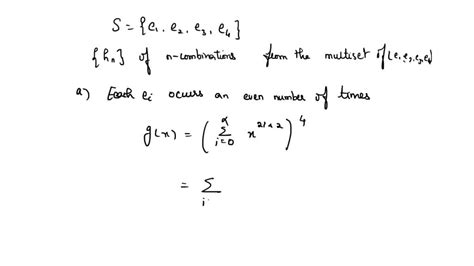 S = {e1, e2, e3, e4}
{hn} of n-combinations from the multiset of {e1, e2, e3, e4}
a) Each ei occurs an even number of times
g(x) = ( ∑_{i=0}^{∝} x^{2i+2} )^4
= ∑_{i